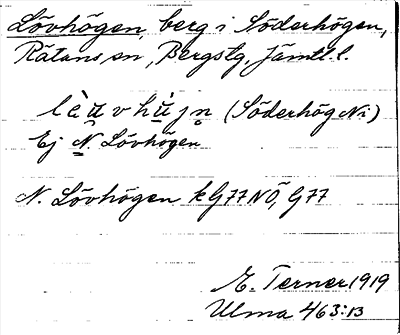 Lövhögen, berg i Söderhögen,
Rätans sn, Bergs tg, Jämtl. l.
(Söderhög Ni)
Ej N. Lövhögen
N. Lövhögen k G77 NÖ, G77
E. Terner 1919
Ulma 463:13